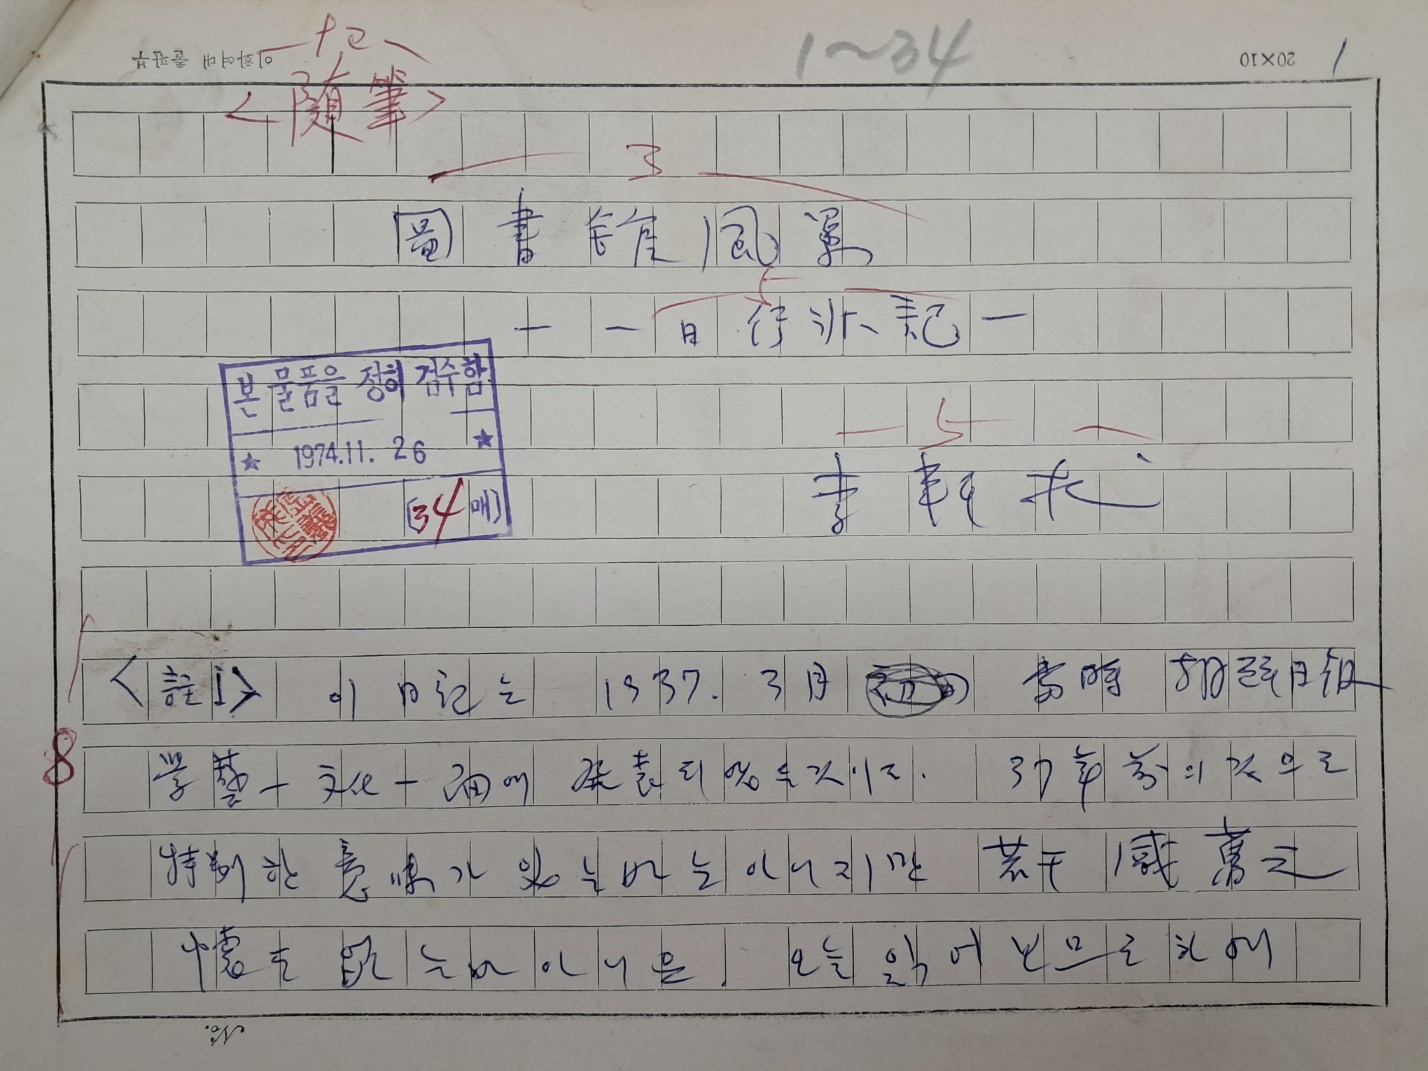 이화여대 출판부
1~34
20×10
1
<隨筆>
3
圖書館 風景
— 一日行狀記 —
5
李軒求
본 물품을 정히 검수함
★ 1974.11. 26 ★
(34 매)
<註1> 이 日記는 1937. 3月 當時 朝鮮日報
8
學藝—文化—面에 發表되었든 것이다. 37年前의 것으로
特別한 意味가 있는 바는 아니지만 若干 感舊之
懷도 없는바 아니온 오늘 읽어보므로 하여
No.